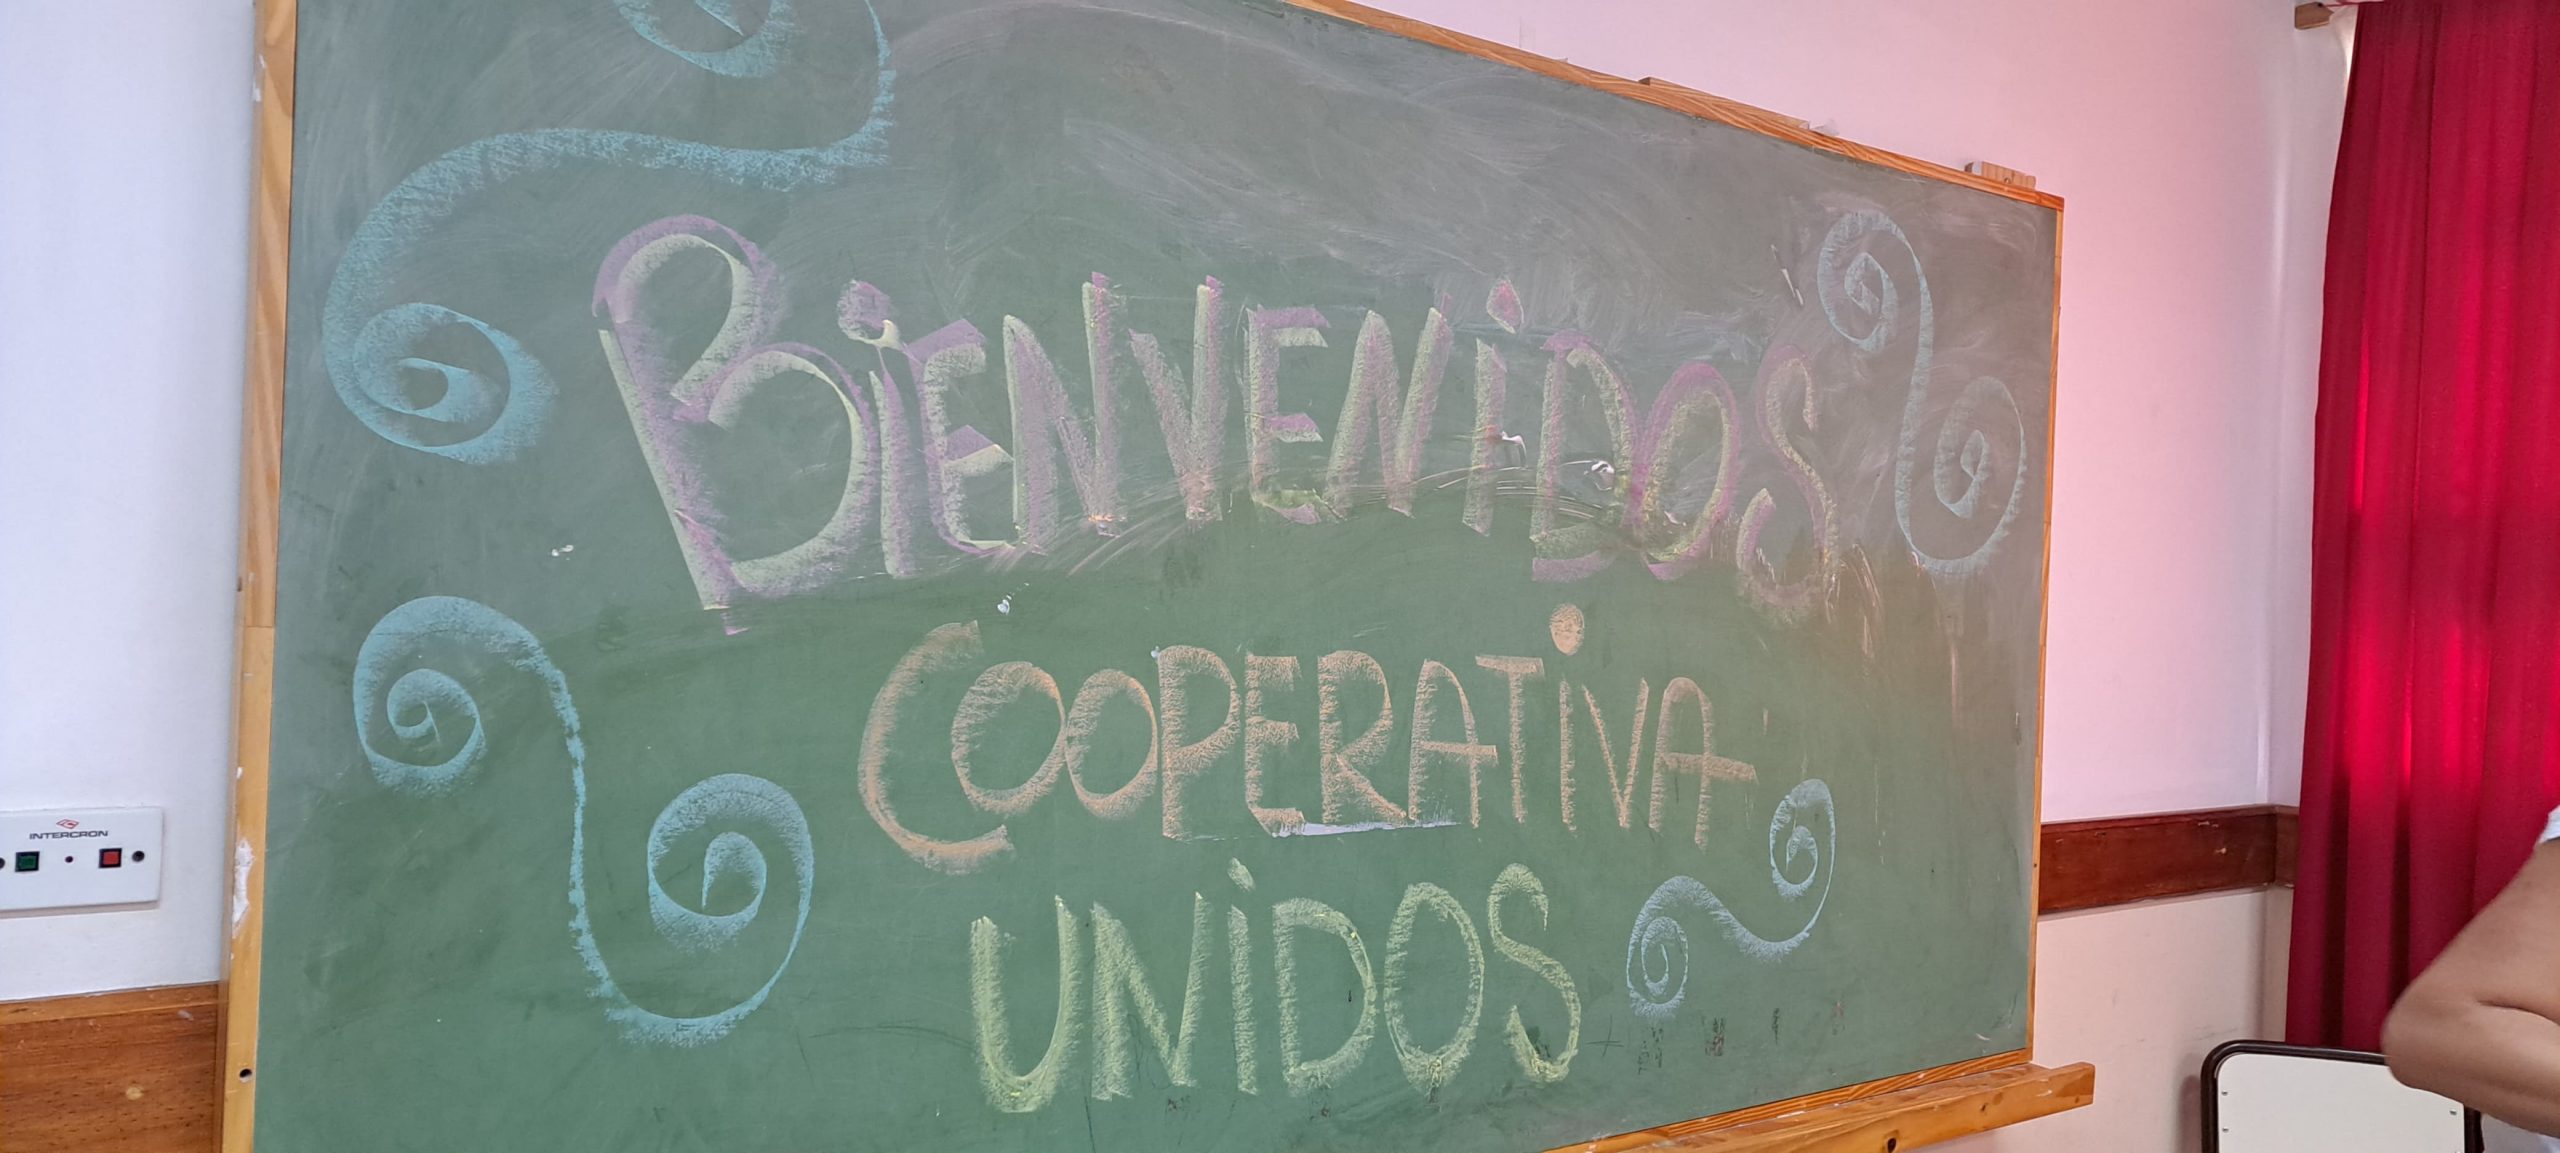 BiENVENiDOS
COOPERATiVA
UNiDOS
INTERCRON